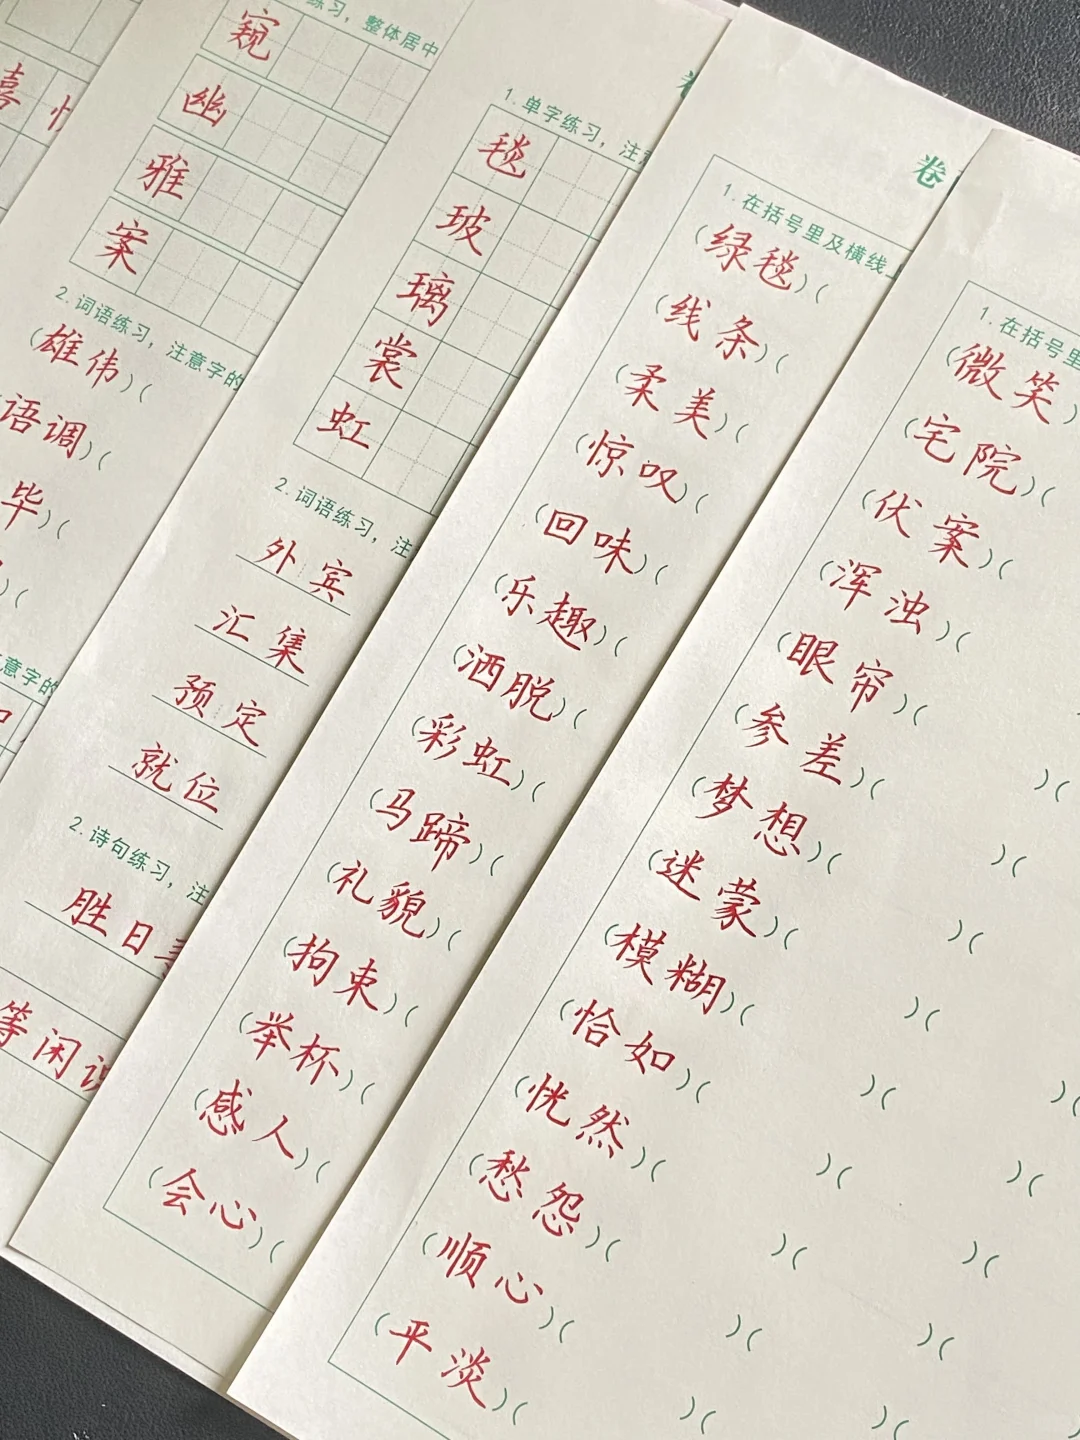 喜
练习，整体居中
窥
幽
雅
案
2. 词语练习，注意字的
(雄伟)(
语调)(
毕)(
意字的
1. 单字练习，注
毯
玻
璃
裳
虹
2. 词语练习，注
外宾
汇集
预定
就位
2. 诗句练习，注
胜日
等闲
卷
1. 在括号里及横线
(绿毯)(
(线条)(
(柔美)(
(惊叹)(
(回味)(
(乐趣)(
(洒脱)(
(彩虹)(
(马蹄)(
(礼貌)(
(拘束)(
(举杯)(
(感人)(
(会心)(
1. 在括号里
(微笑)
(宅院)(
(伏案)(
(浑浊)(
(眼帘)(
(参差)(
(梦想)(
(迷蒙)(
(模糊)(
(恰如)(
(恍然)(
(愁怨)(
(顺心)(
(平淡)(